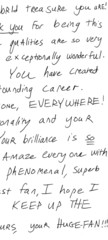 world treasure you are!
k you for being this
. qualities are so very
exceptionally wonderful.
YOU have created
tounding career.
one, EVERYWHERE!
onality and your
Your brilliance is so
Amaze everyone with
PHENOMENAL, superb
st fan, I hope I
KEEP UP THE
URS, your HUGE FAN!!!